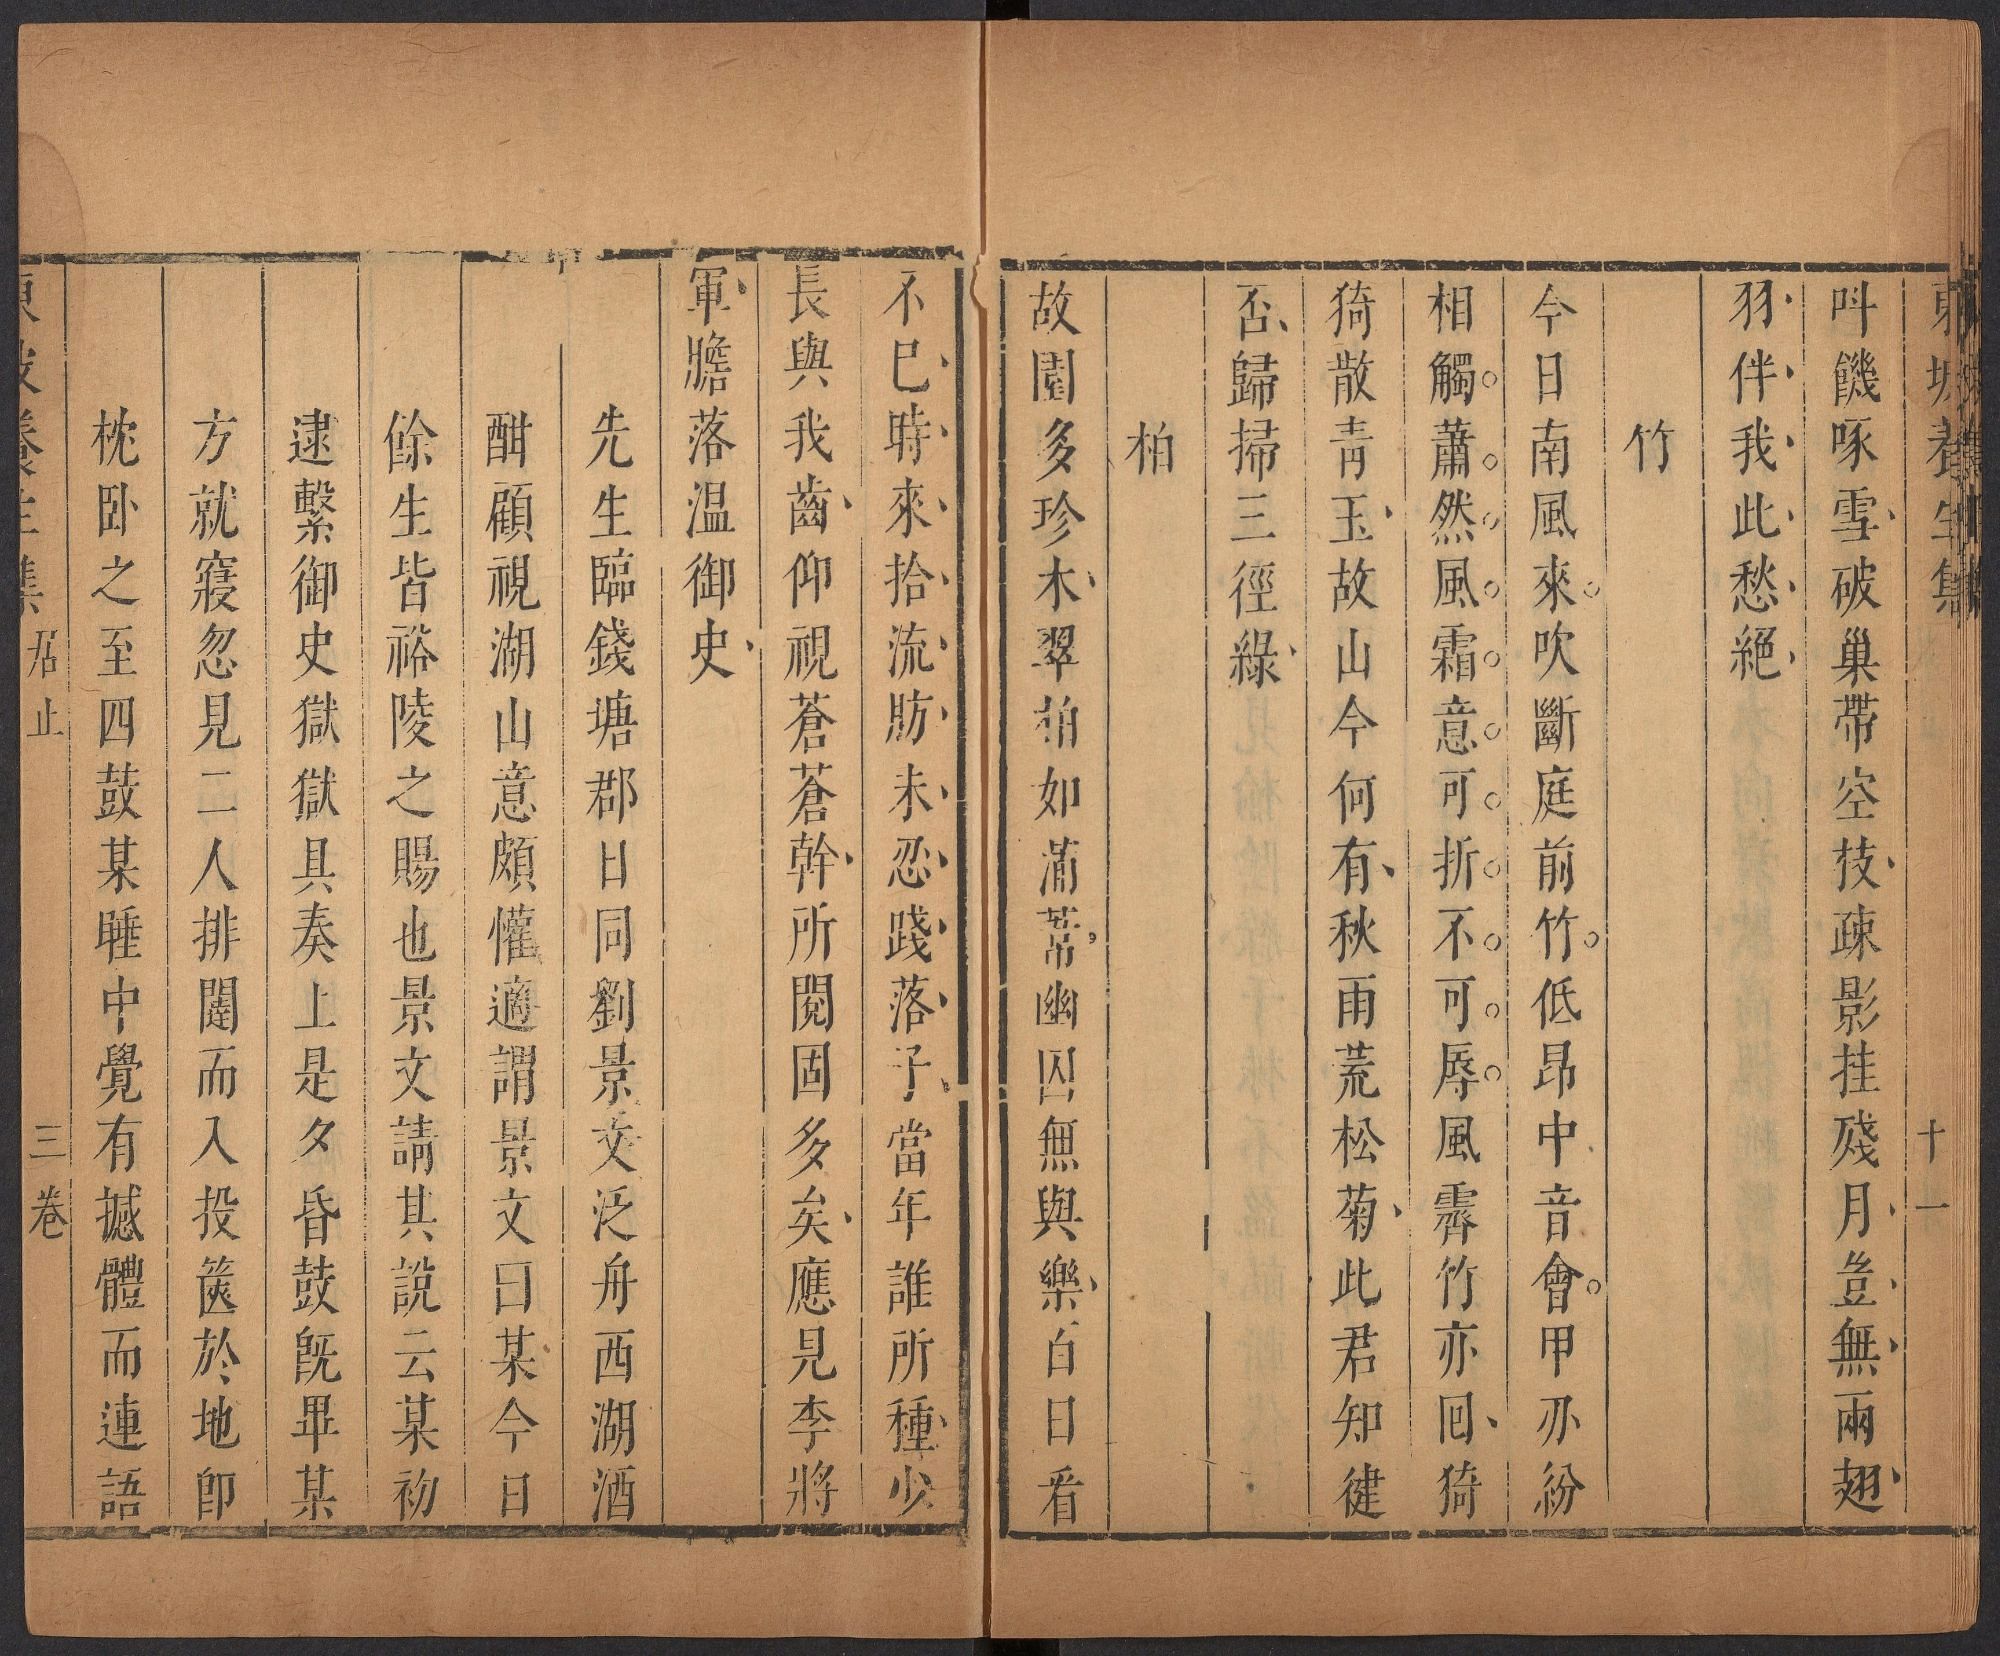 東坡養生集
十一
叫饑啄雪破巢帶空枝疎影挂殘月豈無兩翅
羽伴我此愁絕
竹
今日南風來吹斷庭前竹低昂中音會甲刃紛
相觸蕭然風霜意可折不可辱風霽竹亦回猗
猗散青玉故山今何有秋雨荒松菊此君知健
否歸掃三徑綠
柏
故園多珍木翠柏如蒲葦幽囚無與樂百日看
不已時來拾流肪未忍踐落子當年誰所種少
長與我齒仰視蒼蒼幹所閱固多矣應見李將
軍膽落温御史
先生臨錢塘郡日同劉景文泛舟西湖酒
酣顧視湖山意頗懽適謂景文曰某今日
餘生皆裕陵之賜也景文請其說云某初
逮繫御史獄獄具奏上是夕昏鼓旣畢某
方就寢忽見二人排闥而入投篋於地卽
枕卧之至四鼓某睡中覺有撼體而連語
東坡養生集
居止
三卷